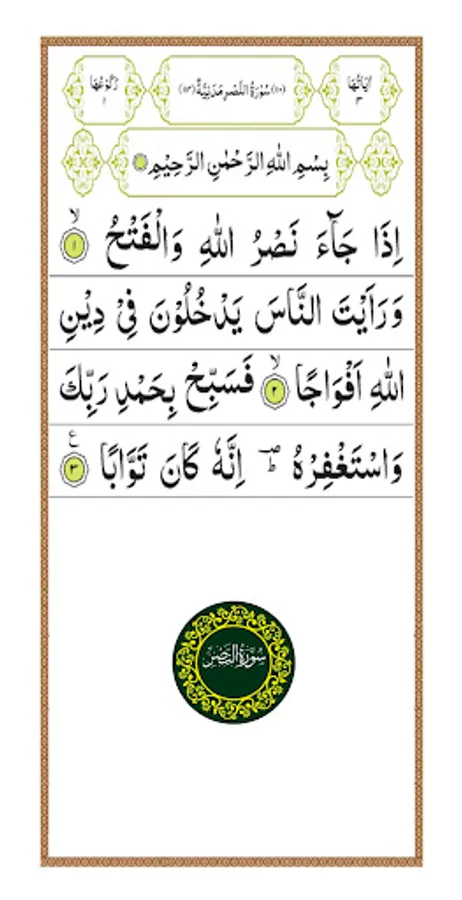 اٰيَاتُهَا ٣
(١١٠) سُوْرَةُ النَّصْرِ مَدَنِيَّةٌ (١١٤)
رُكُوْعُهَا ١
بِسْمِ اللهِ الرَّحْمٰنِ الرَّحِيْمِ
اِذَا جَآءَ نَصْرُ اللهِ وَالْفَتْحُ ۙ ١
وَرَاَيْتَ النَّاسَ يَدْخُلُوْنَ فِيْ دِيْنِ
اللهِ اَفْوَاجًا ۙ ٢ فَسَبِّحْ بِحَمْدِ رَبِّكَ
وَاسْتَغْفِرْهُ ؔؕ اِنَّهٗ كَانَ تَوَّابًا ع ٣
سُوْرَةُ النَّصْرِ